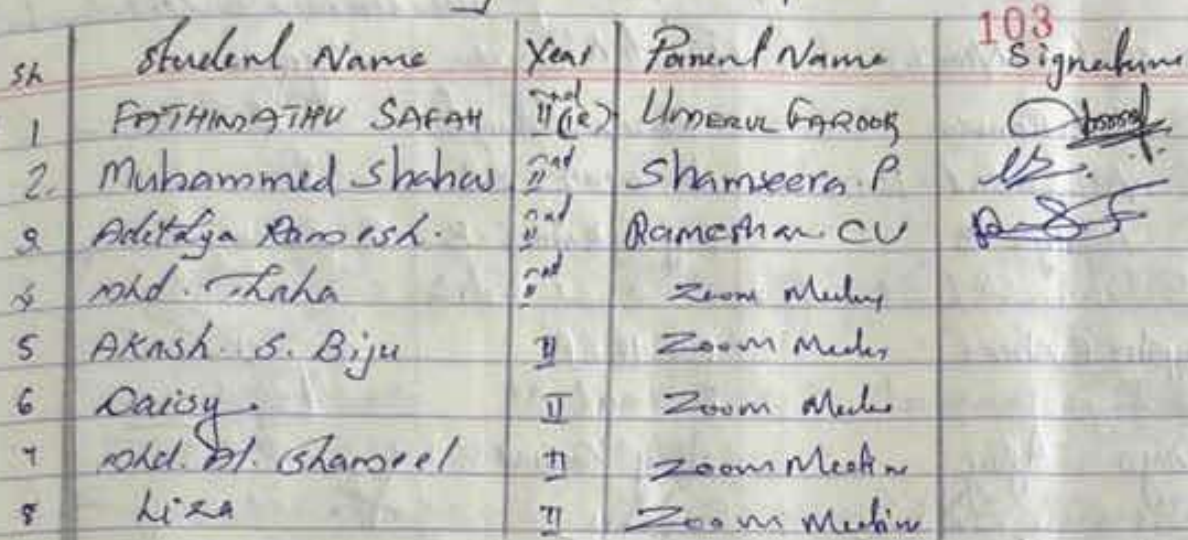 103
Sh Student Name Year Parent Name Signature
1 FATHIMATHU SAFAH IInd (ie) UMERUL FAROOK
2. Muhammed Shahas IInd Shamseera. P
3 Aditdya Ramesh. IInd Rameshan CV
4 Mhd. Thaha IInd Zoom Meeting
5 Akash. S. Biju II Zoom Meeting
6 Daisy. II Zoom Meeting
7 Mhd. Al. Shameel II Zoom Meeting
8 Liza II Zoom Meeting